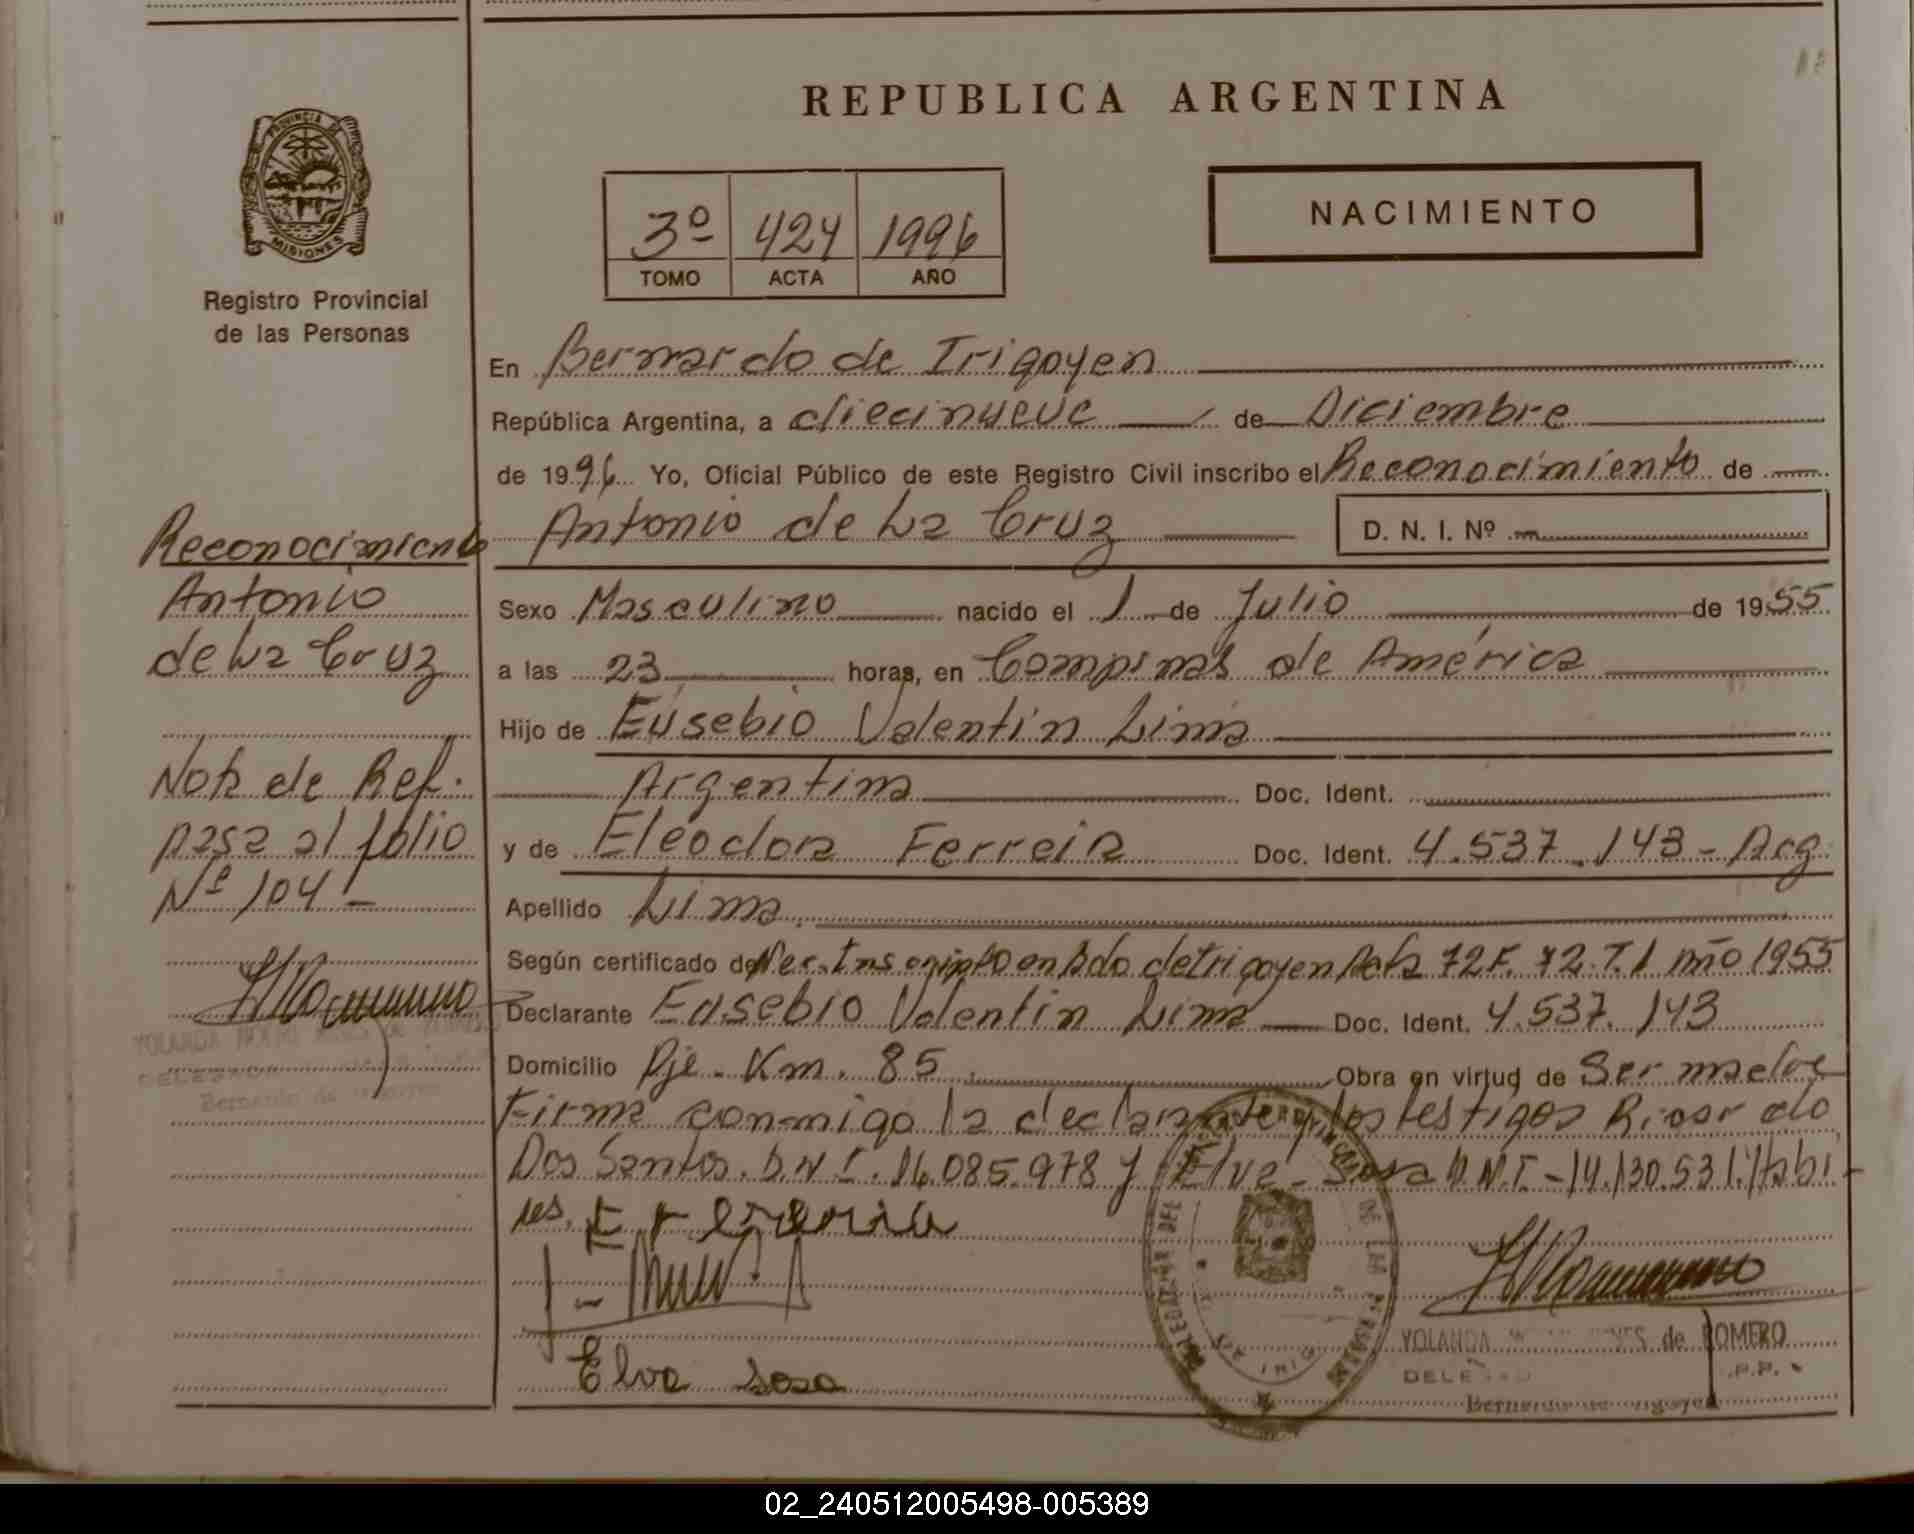 REPUBLICA ARGENTINA
PROVINCIA DE
MISIONES
Registro Provincial
de las Personas
3º 424 1996
TOMO ACTA AÑO
NACIMIENTO
En Bernardo de Irigoyen
República Argentina, a diecinueve de Diciembre
de 1996 Yo, Oficial Público de este Registro Civil inscribo el Reconocimiento de
Antonio de La Cruz D. N. I. Nº
Sexo Masculino nacido el 1 de Julio de 1955
a las 23 horas, en Compinas de América
Hijo de Eusebio Valentin Lima
Argentina Doc. Ident.
y de Eleodora Ferreira Doc. Ident. 4.537.143 - Arg.
Apellido Lima
Según certificado de Nac. Inscripto en Bdo de Irigoyen Acta 72 F. 72. T. 1 Año 1955
Declarante Eusebio Valentin Lima Doc. Ident. 4.537.143
Domicilio Pje. Km. 85 Obra en virtud de Ser madre
Firma conmigo la declarante y los testigos Ricardo
Dos Santos. D.N.I. 16.085.978 y Elva Sosa D.N.I. - 14.130.531. Habi-
les.
Elva Sosa
YOLANDA de ROMERO
Reconocimiento
Antonio
de La Cruz
Nota de Ref.
pasa al folio
Nº 104 -
YOLANDA
Bernardo de
02_240512005498-005389